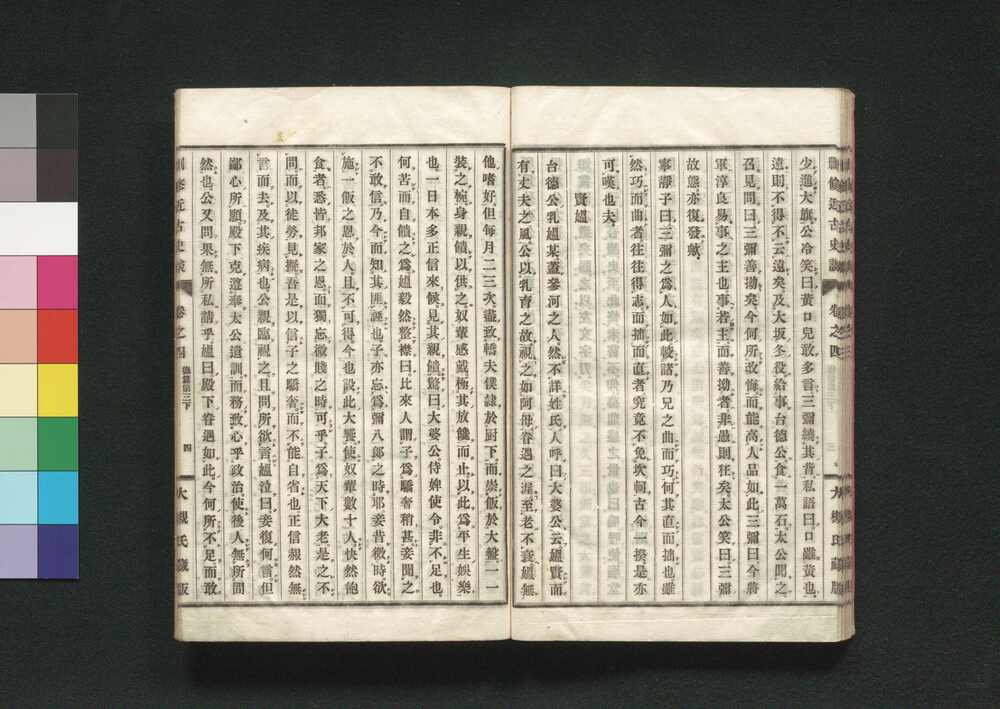 少進大旗公冷笑曰黃口兒敢多言三彌繞其背私語曰口雖黃也
遠則不得不云遠矣及大坂冬役給事台德公食一萬石太公聞之
召見問曰三彌善拗矣今何所改悔而能高人品如此三彌曰今將
軍淳良易事之主也事若主而善拗者非愚則狂矣太公笑曰三彌
故態亦復發歟
寧靜子曰三彌之爲人如此較諸乃兄之曲而巧何其直而拙也雖
然巧而曲者往往得志而拙而直者究竟不免坎軻古今一揆是亦
可嘆也夫
賢媼
台德公乳媼某蓋參河之人然不詳姓氏人呼曰大婆公云媼賢而
有丈夫之風公以乳育之故視之如阿母眷遇之渥至老不衰媼無
近古史談
卷之四
三
大槻氏藏版
他嗜好但每月二三次盡致轎夫僕隸於厨下而崇飯於大盤一一
裝之椀身親饋以供之奴輩感戴極其放饞而止以此爲平生娛樂
也一日本多正信來候見其親饋驚曰大婆公侍婢使令非不足也
何苦而自饋之爲媼毅然整襟曰比來人謂子爲驕奢稍甚妾聞之
不敢信乃今而知其匪誣也子亦忘爲彌八郞之時邪妾昔微時欲
施一飯之恩於人且不可得今也設此大饗使奴輩數十人快然飽
食者悉皆邦家之恩而獨忘微賤之時可乎子爲天下大老是之不
問而以徒勞見擬吾是以信子之驕奢而不能自省也正信赧然無
言而去及其疾病也公親臨視之且問所欲言媼泣曰妾復何言但
鄙心所願殿下克遵奉太公遺訓而務致心乎政治使後人無所間
然也公又問果無所私請乎媼曰殿下眷遇如此今何所不足而敢
近古史談
卷之四
四
大槻氏藏版